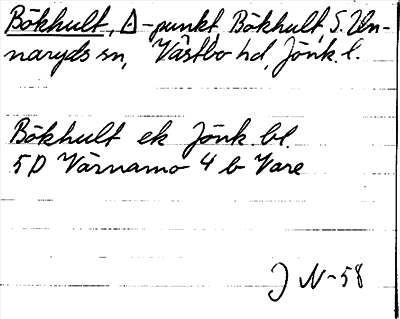 Bökhult, △-punkt, Bökhult, S. Un-
naryds sn, Västbo hd, Jönk. l.
Bökhult ek Jönk. bl.
5D Värnamo 4 b Vare
J N-58